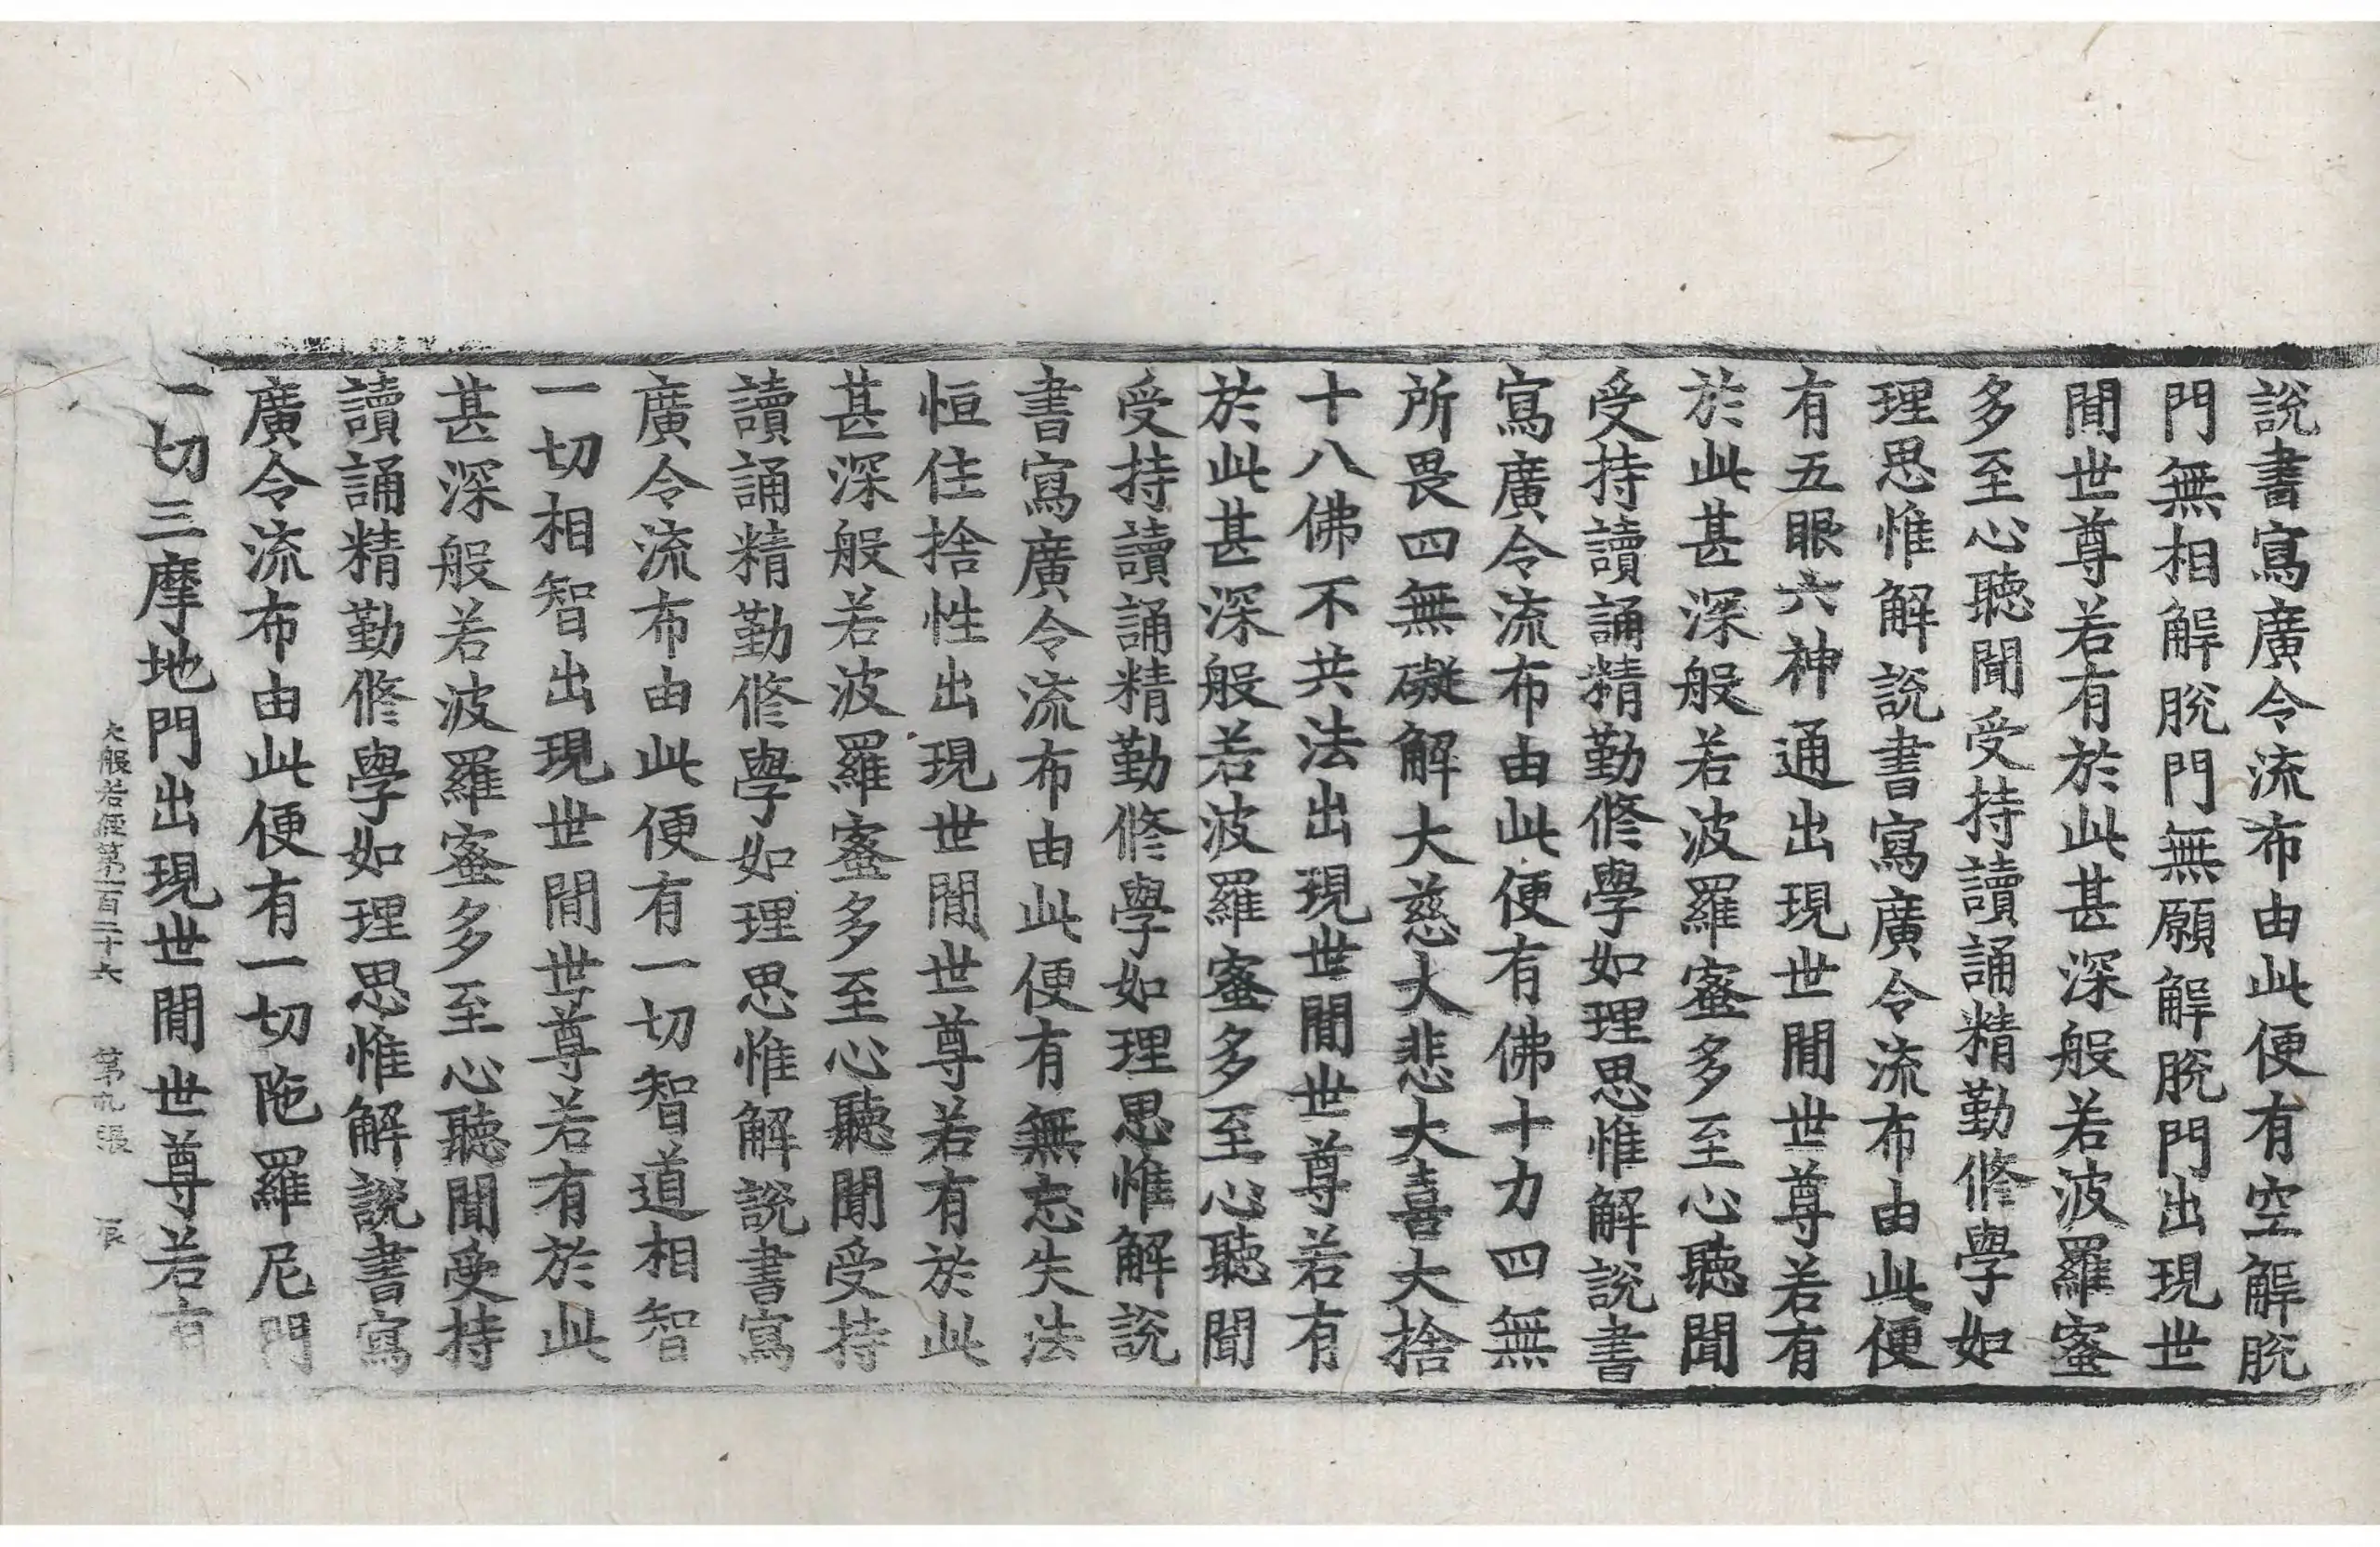 說書寫廣令流布由此便有空解脫
門無相解脫門無願解脫門出現世
間世尊若有於此甚深般若波羅蜜
多至心聽聞受持讀誦精勤修學如
理思惟解說書寫廣令流布由此便
有五眼六神通出現世間世尊若有
於此甚深般若波羅蜜多至心聽聞
受持讀誦精勤修學如理思惟解說書
寫廣令流布由此便有佛十力四無
所畏四無礙解大慈大悲大喜大捨
十八佛不共法出現世間世尊若有
於此甚深般若波羅蜜多至心聽聞
受持讀誦精勤修學如理思惟解說
書寫廣令流布由此便有無忘失法
恒住捨性出現世間世尊若有於此
甚深般若波羅蜜多至心聽聞受持
讀誦精勤修學如理思惟解說書寫
廣令流布由此便有一切智道相智
一切相智出現世間世尊若有於此
甚深般若波羅蜜多至心聽聞受持
讀誦精勤修學如理思惟解說書寫
廣令流布由此便有一切陁羅尼門
一切三摩地門出現世間世尊若有
大般若經第一百二十六 第九張 辰